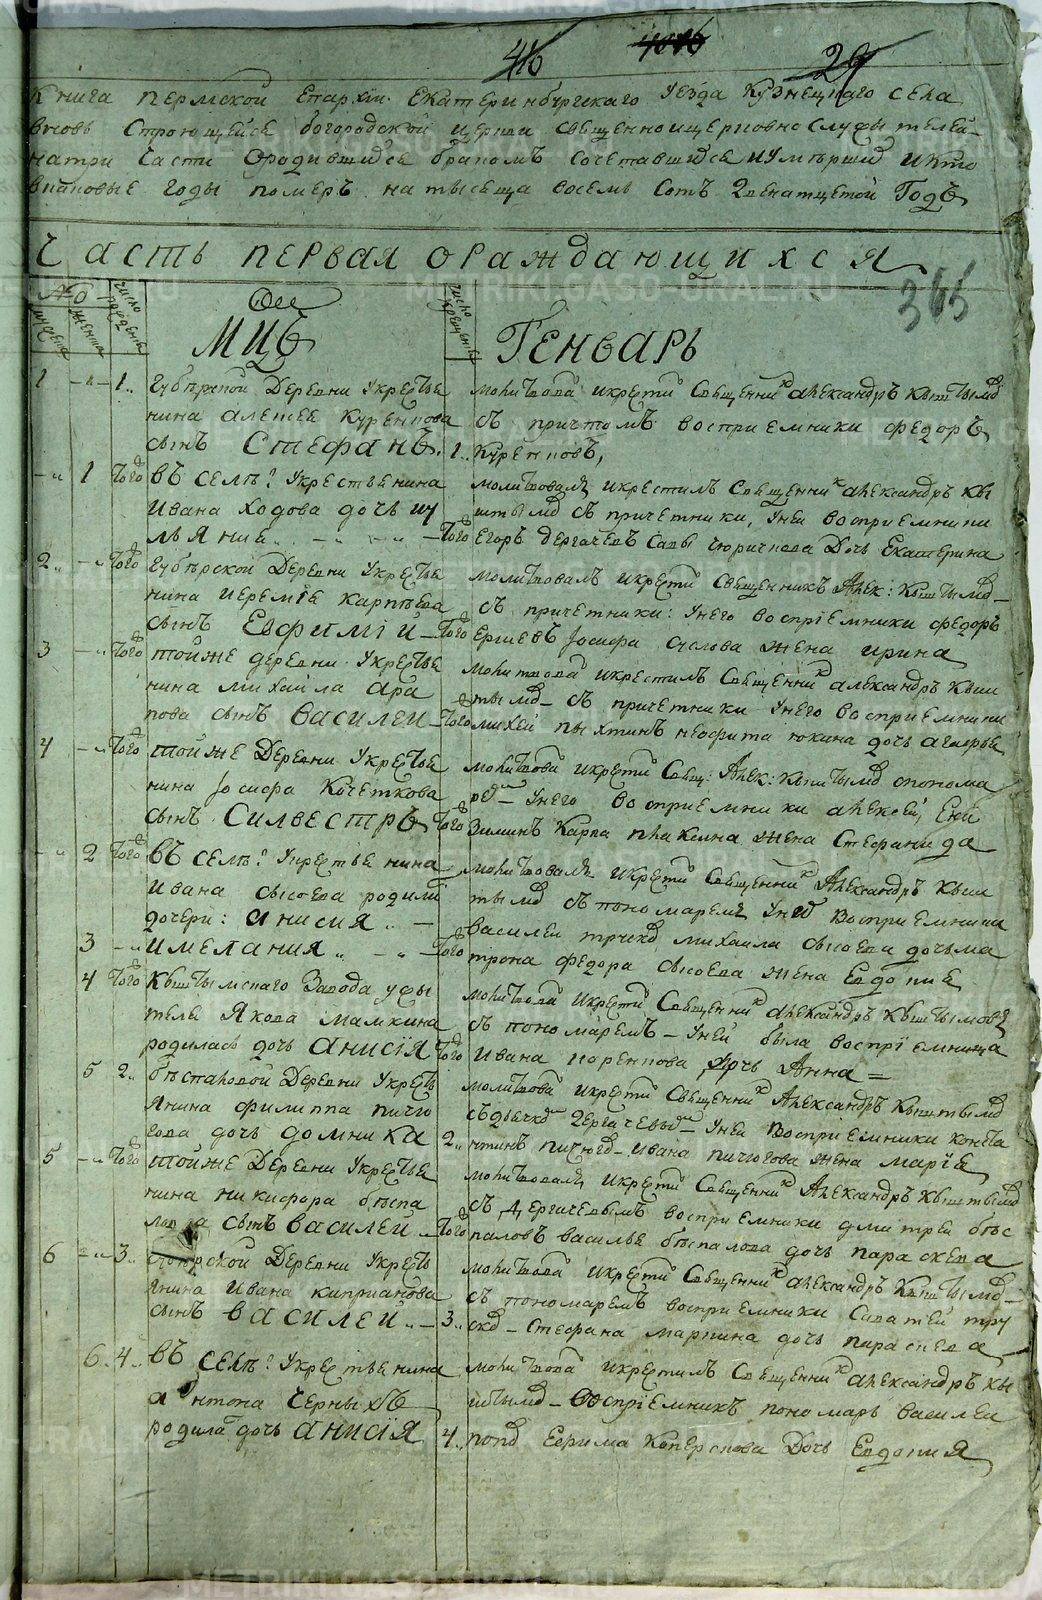 46 29
Книга пермской Епархiи Екатеринбургскаго уезда Кузнецкаго села
вновь строющейсе богородской церкви священноицерковнослужителей
натри части ородившихсе бракомъ сочетавшихсе иумершихъ икто
вкаковые годы померъ натысеща восемь сотъ двенатцетой годъ
Часть первая ораждающихся
365
мцъ
Генварь
1 1 Губѣрской деревни укрестье
нина алексея Куренкова
сынъ Стефанъ
молитвовалъ икрестилъ священникъ александръ кыштымовъ
съ причтомъ восприемники федоръ
1 Куренковъ,
1 того въ селѣ: укрестьенина
Ивана ходова дочь иу
лѣяния того
молитвовалъ икрестилъ священникъ александръ кы
штымовъ съ причетники, унеи восприемники
Егоръ дергачевъ савы дочь Екатерина
2 того Губѣрской деревни укрестье
нина иеремiе карпѣева
сынъ Евфимiй того
молитвовалъ икрестилъ священникъ Алек: кыштымовъ
съ причетники: унего воспрiемники федоръ
Ершевъ Iосифа суслова жена ирина
3 того тойже деревни укрестье
нина михаила ара
пова сынъ василеи того
молитвовалъ икрестилъ священникъ александръ кыш
тымовъ съ причетники унего восприемники
михей пыхтинъ неофита юкина дочь
4 того тойже деревни укрестье
нина Iосифа Кочеткова
сынъ Силвестръ того
молитвовалъ икрестилъ свещ: Алек: кыштымовъ спонома
ремъ унего восприемники алексеи
Зиминъ Карпа плаксина жена Стефанида
2 того въ селѣ: укрестьенина
Ивана сысоева родили
дочери: анисия
молитвовалъ икрестилъ священникъ Александръ кыш
тымовъ съ пономаремъ унеи восприемники
василеи михаила сысоева дочь ма
3 и мелания того
трона федора сысоева жена Евдокие
4 того Кыштымскаго Завода
Якова мамкина
родилась дочь анисiя того
молитвовалъ икрестилъ священникъ александръ кыштымовъ
съ пономаремъ унеи была воспрiемница
Ивана коренкова дочь Анна
5 2 бѣспаловой деревни укресть
янина филиппа пичю
гова дочь домника
молитвовалъ икрестилъ священникъ Александръ кыштымовъ
съ дергачевымъ унеи восприемники конста
2 нтинъ пичюговъ ивана пичюгова жена марiе
5 того тойже деревни укрестье
нина никифора бѣспа
лова сынъ василей того
молитвовалъ икрестилъ священникъ Александръ кыштымовъ
съ дергачевымъ восприемники дмитреи бѣс
паловъ василье бѣспалова дочь параскева
6 3 деревни укресть
янина ивана киприанова
сынъ василеи
молитвовалъ икрестилъ священникъ александръ кыштымовъ
съ пономаремъ восприемники саватей тру
3 сковъ стефана маркина дочь параскева
6 4 въ селѣ: укрестьенина
антона черныхъ
родиласъ дочь анисiя
молитвовалъ икрестилъ священникъ александръ кы
штымовъ воспрiемникъ пономарь василеи
4 поповъ Ефима дочь Евдокия